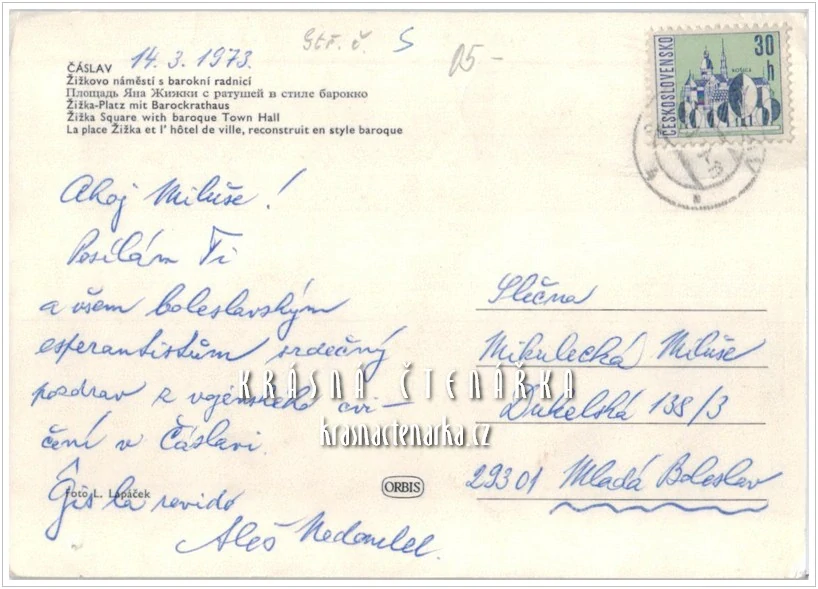 14.3.1973.
Stř. č. S
15-
ČÁSLAV
Žižkovo náměstí s barokní radnicí
Площадь Яна Жижки с ратушей в стиле барокко
Žižka-Platz mit Barockrathaus
Žižka Square with baroque Town Hall
La place Žižka et l' hôtel de ville, reconstruit en style baroque
ČESKOSLOVENSKO
30 h
KOŠICE
Ahoj Miluše!
Posílám Ti
a všem boleslavským
esperantistům srdečný
pozdrav z vojenského cvi-
čení v Čáslavi.
Ĝis la revido
Aleš
Slečna
Mikulecká Miluše
Dukelská 138/3
29301 Mladá Boleslav
KRÁSNÁ ČTENÁŘKA
krasnactenarka.cz
Foto L. Lapáček
ORBIS